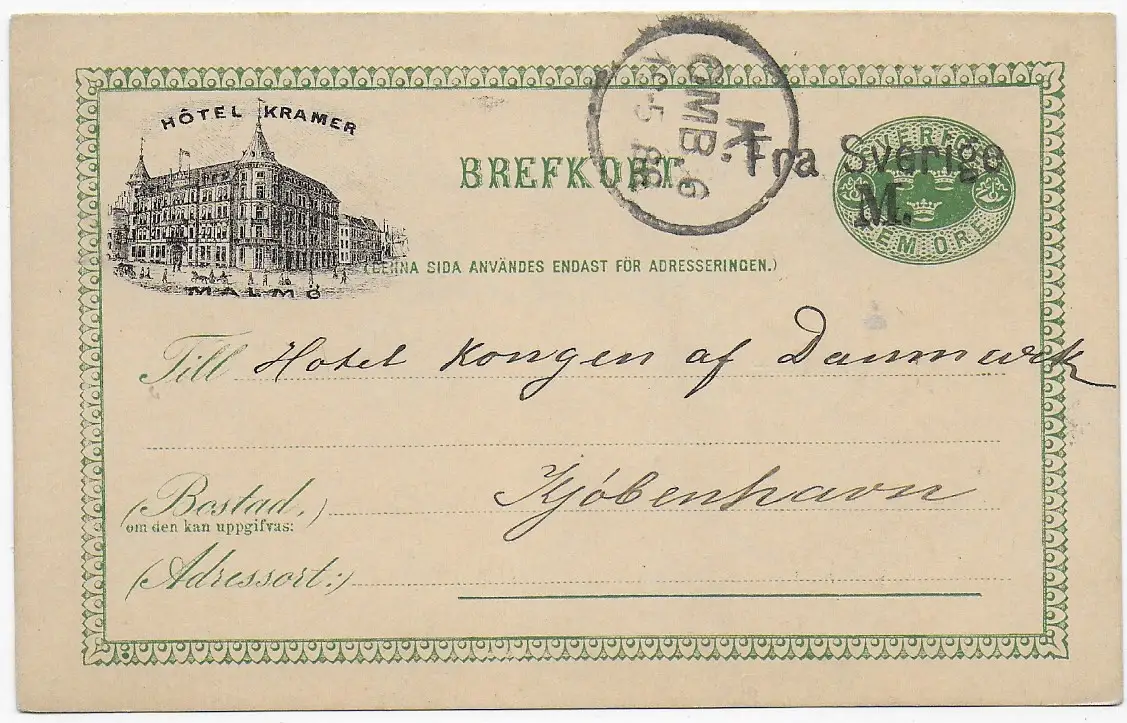 HÔTEL KRAMER
MALMÖ
BREFKORT.
(DENNA SIDA ANVÄNDES ENDAST FÖR ADRESSERINGEN.)
K
OMB. 6
19-5 88
Fra Sverige
M.
SVERIGE
FEM ÖRE
Till Hotel Kongen af Danmark
Kjöbenhavn
(Bostad,)
om den kan uppgifvas:
(Adressort:)